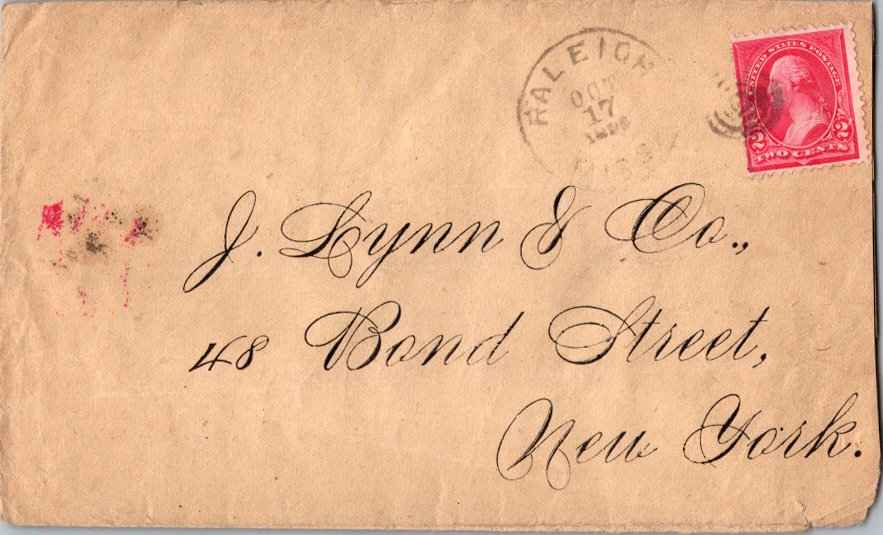 RALEIGH
OCT
17
MISS
UNITED STATES POSTAGE
2 2
TWO CENTS
J. Lynn & Co.,
48 Bond Street,
New York.